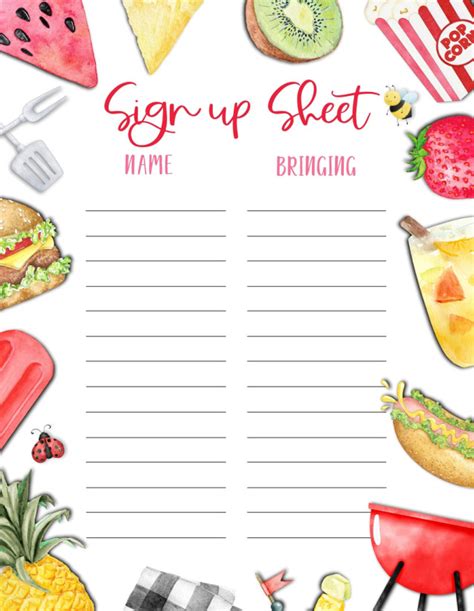 POP
CORN
Sign up Sheet
NAME
BRINGING